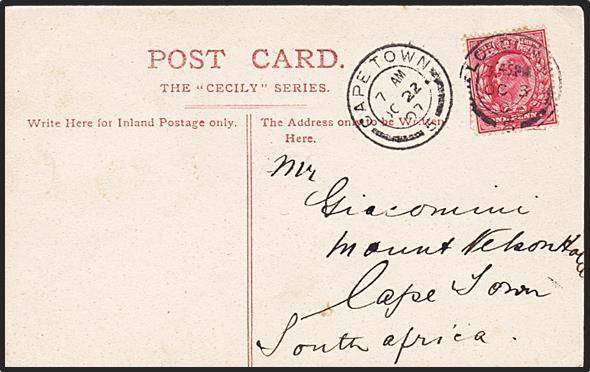 POST CARD.
THE "CECILY" SERIES.
Write Here for Inland Postage only.
The Address only to be Written
Here.
CAPE TOWN
7 AM
OC 22
07
Mr
Giacomini
Mount Nelson Hotel
Cape Town
South Africa.